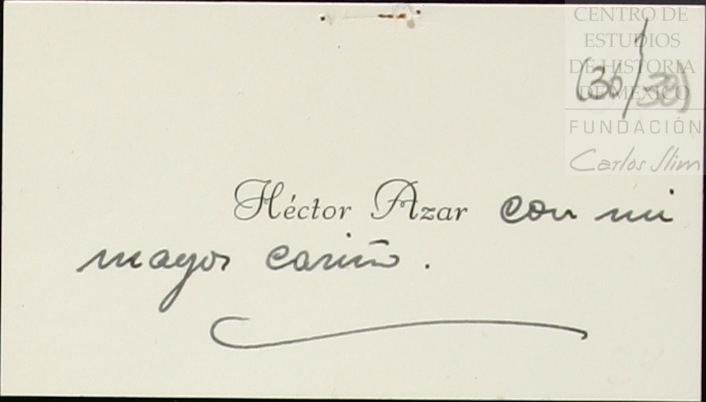 CENTRO DE
ESTUDIOS
DE HISTORIA
DE MÉXICO
FUNDACIÓN
Carlos Slim
(36/38)
Héctor Azar con mi
mayor cariño.